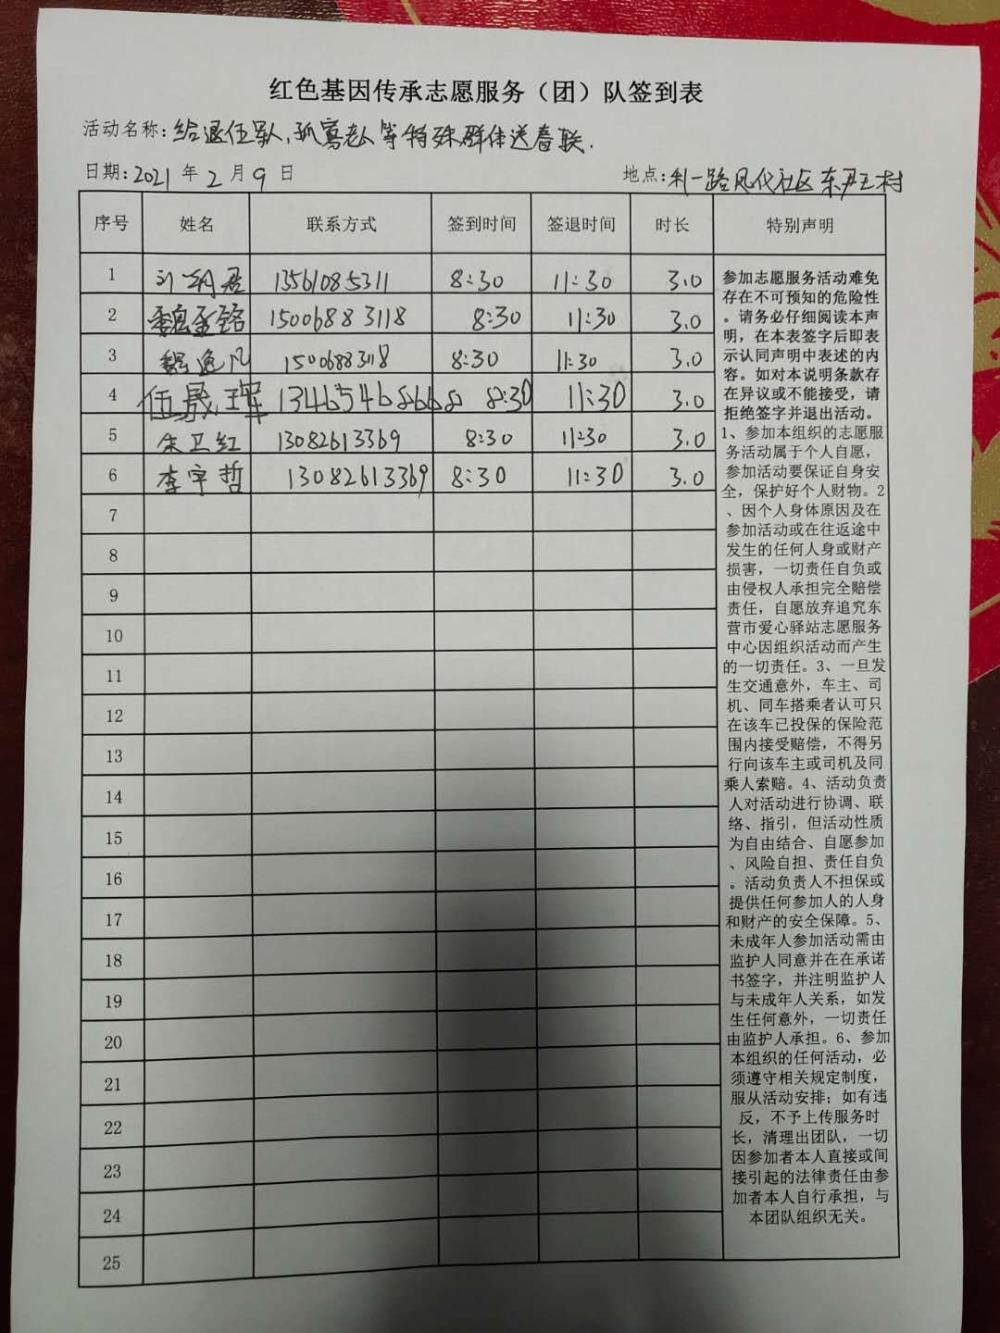 红色基因传承志愿服务（团）队签到表
活动名称:给退伍军人,孤寡老人等特殊群体送春联.
日期:2021 年 2 月 9 日 地点:利一路风化社区东尹王村
序号 姓名 联系方式 签到时间 签退时间 时长 特别声明
1 13561085311 8:30 11:30 3.0
2 15006883118 8:30 11:30 3.0
3 魏逸凡 1500688318 8:30 11:30 3.0
4 伍晟瑋 13465468668 8:30 11:30 3.0
5 朱卫红 13082613369 8:30 11:30 3.0
6 李宇哲 13082613369 8:30 11:30 3.0
7
8
9
10
11
12
13
14
15
16
17
18
19
20
21
22
23
24
25
参加志愿服务活动难免
存在不可预知的危险性
。请务必仔细阅读本声
明，在本表签字后即表
示认同声明中表述的内
容。如对本说明条款存
在异议或不能接受，请
拒绝签字并退出活动。
1、参加本组织的志愿服
务活动属于个人自愿，
参加活动要保证自身安
全，保护好个人财物。2
、因个人身体原因及在
参加活动或在往返途中
发生的任何人身或财产
损害，一切责任自负或
由侵权人承担完全赔偿
责任，自愿放弃追究东
营市爱心驿站志愿服务
中心因组织活动而产生
的一切责任。3、一旦发
生交通意外，车主、司
机、同车搭乘者认可只
在该车已投保的保险范
围内接受赔偿，不得另
行向该车主或司机及同
乘人索赔。4、活动负责
人对活动进行协调、联
络、指引，但活动性质
为自由结合、自愿参加
、风险自担、责任自负
。活动负责人不担保或
提供任何参加人的人身
和财产的安全保障。5、
未成年人参加活动需由
监护人同意并在在承诺
书签字，并注明监护人
与未成年人关系，如发
生任何意外，一切责任
由监护人承担。6、参加
本组织的任何活动，必
须遵守相关规定制度，
服从活动安排；如有违
反，不予上传服务时
长，清理出团队，一切
因参加者本人直接或间
接引起的法律责任由参
加者本人自行承担，与
本团队组织无关。